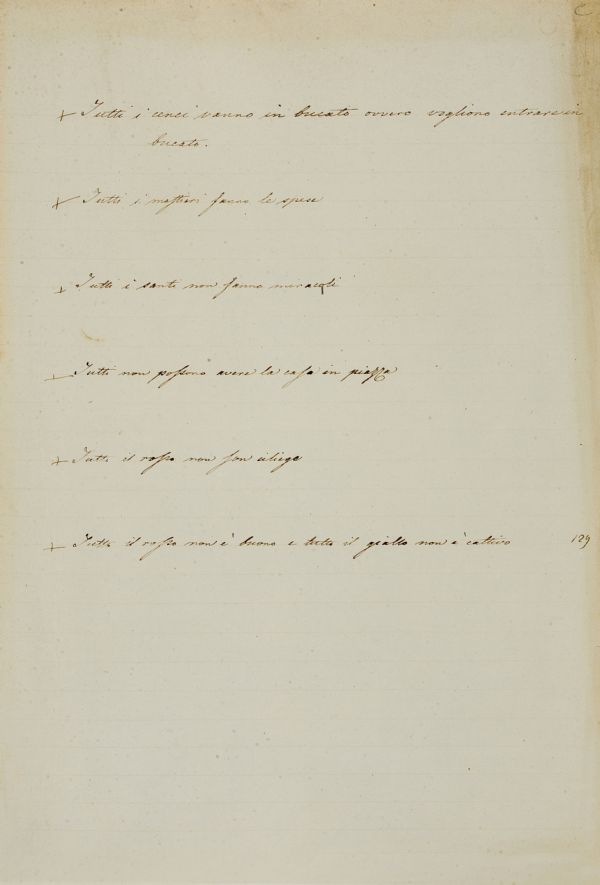 C
+ Tutti i cenci vanno in bucato ovvero vogliono entrare in
bucato.
+ Tutti i mestieri fanno le spese
+ Tutti i santi non fanno miracoli
+ Tutti non possono avere la casa in piazza
+ Tutto il rosso non son ciliege
+ Tutto il rosso non è buono e tutto il giallo non è cattivo 129